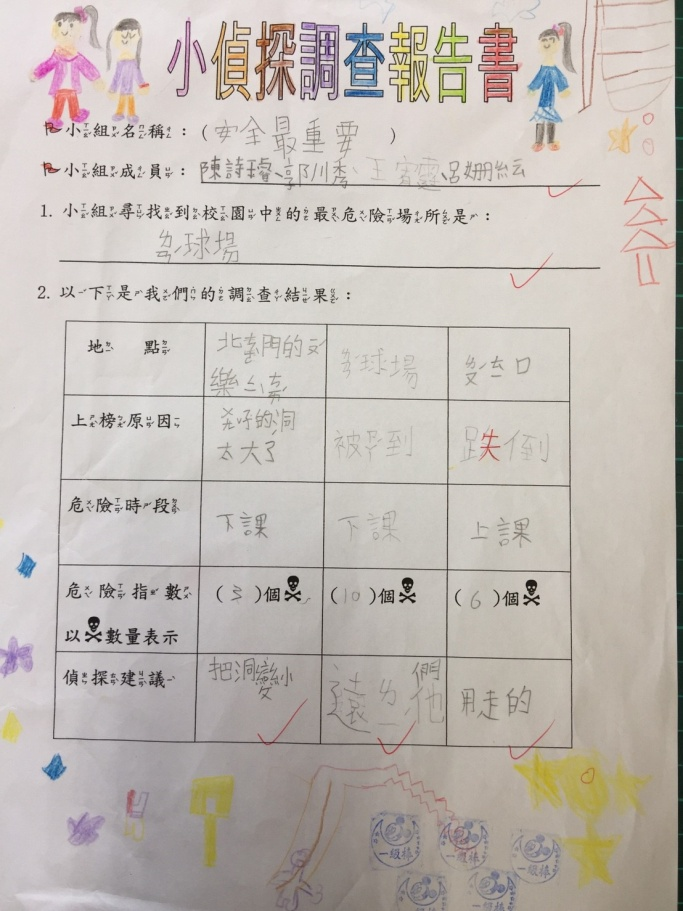 小偵探調查報告書
小組名稱：（安全最重要）
小組成員：陳詩 、郭川秀、王 呂姍紜
1. 小組尋找到校園中的最危險場所是：
ㄌㄢˊ球場
2. 以下是我們的調查結果：
地點 北 門的 樂 ㄌㄢˊ球場
上榜原因 的洞太大了 被 到 跌倒
危險時段 下課 下課 上課
危險指數以☠數量表示 （3）個☠ （10）個☠ （6）個☠
偵探建議 把洞變小 遠ㄌㄧˊ他們 用走的
一級棒 一級棒 一級棒
一級棒 一級棒